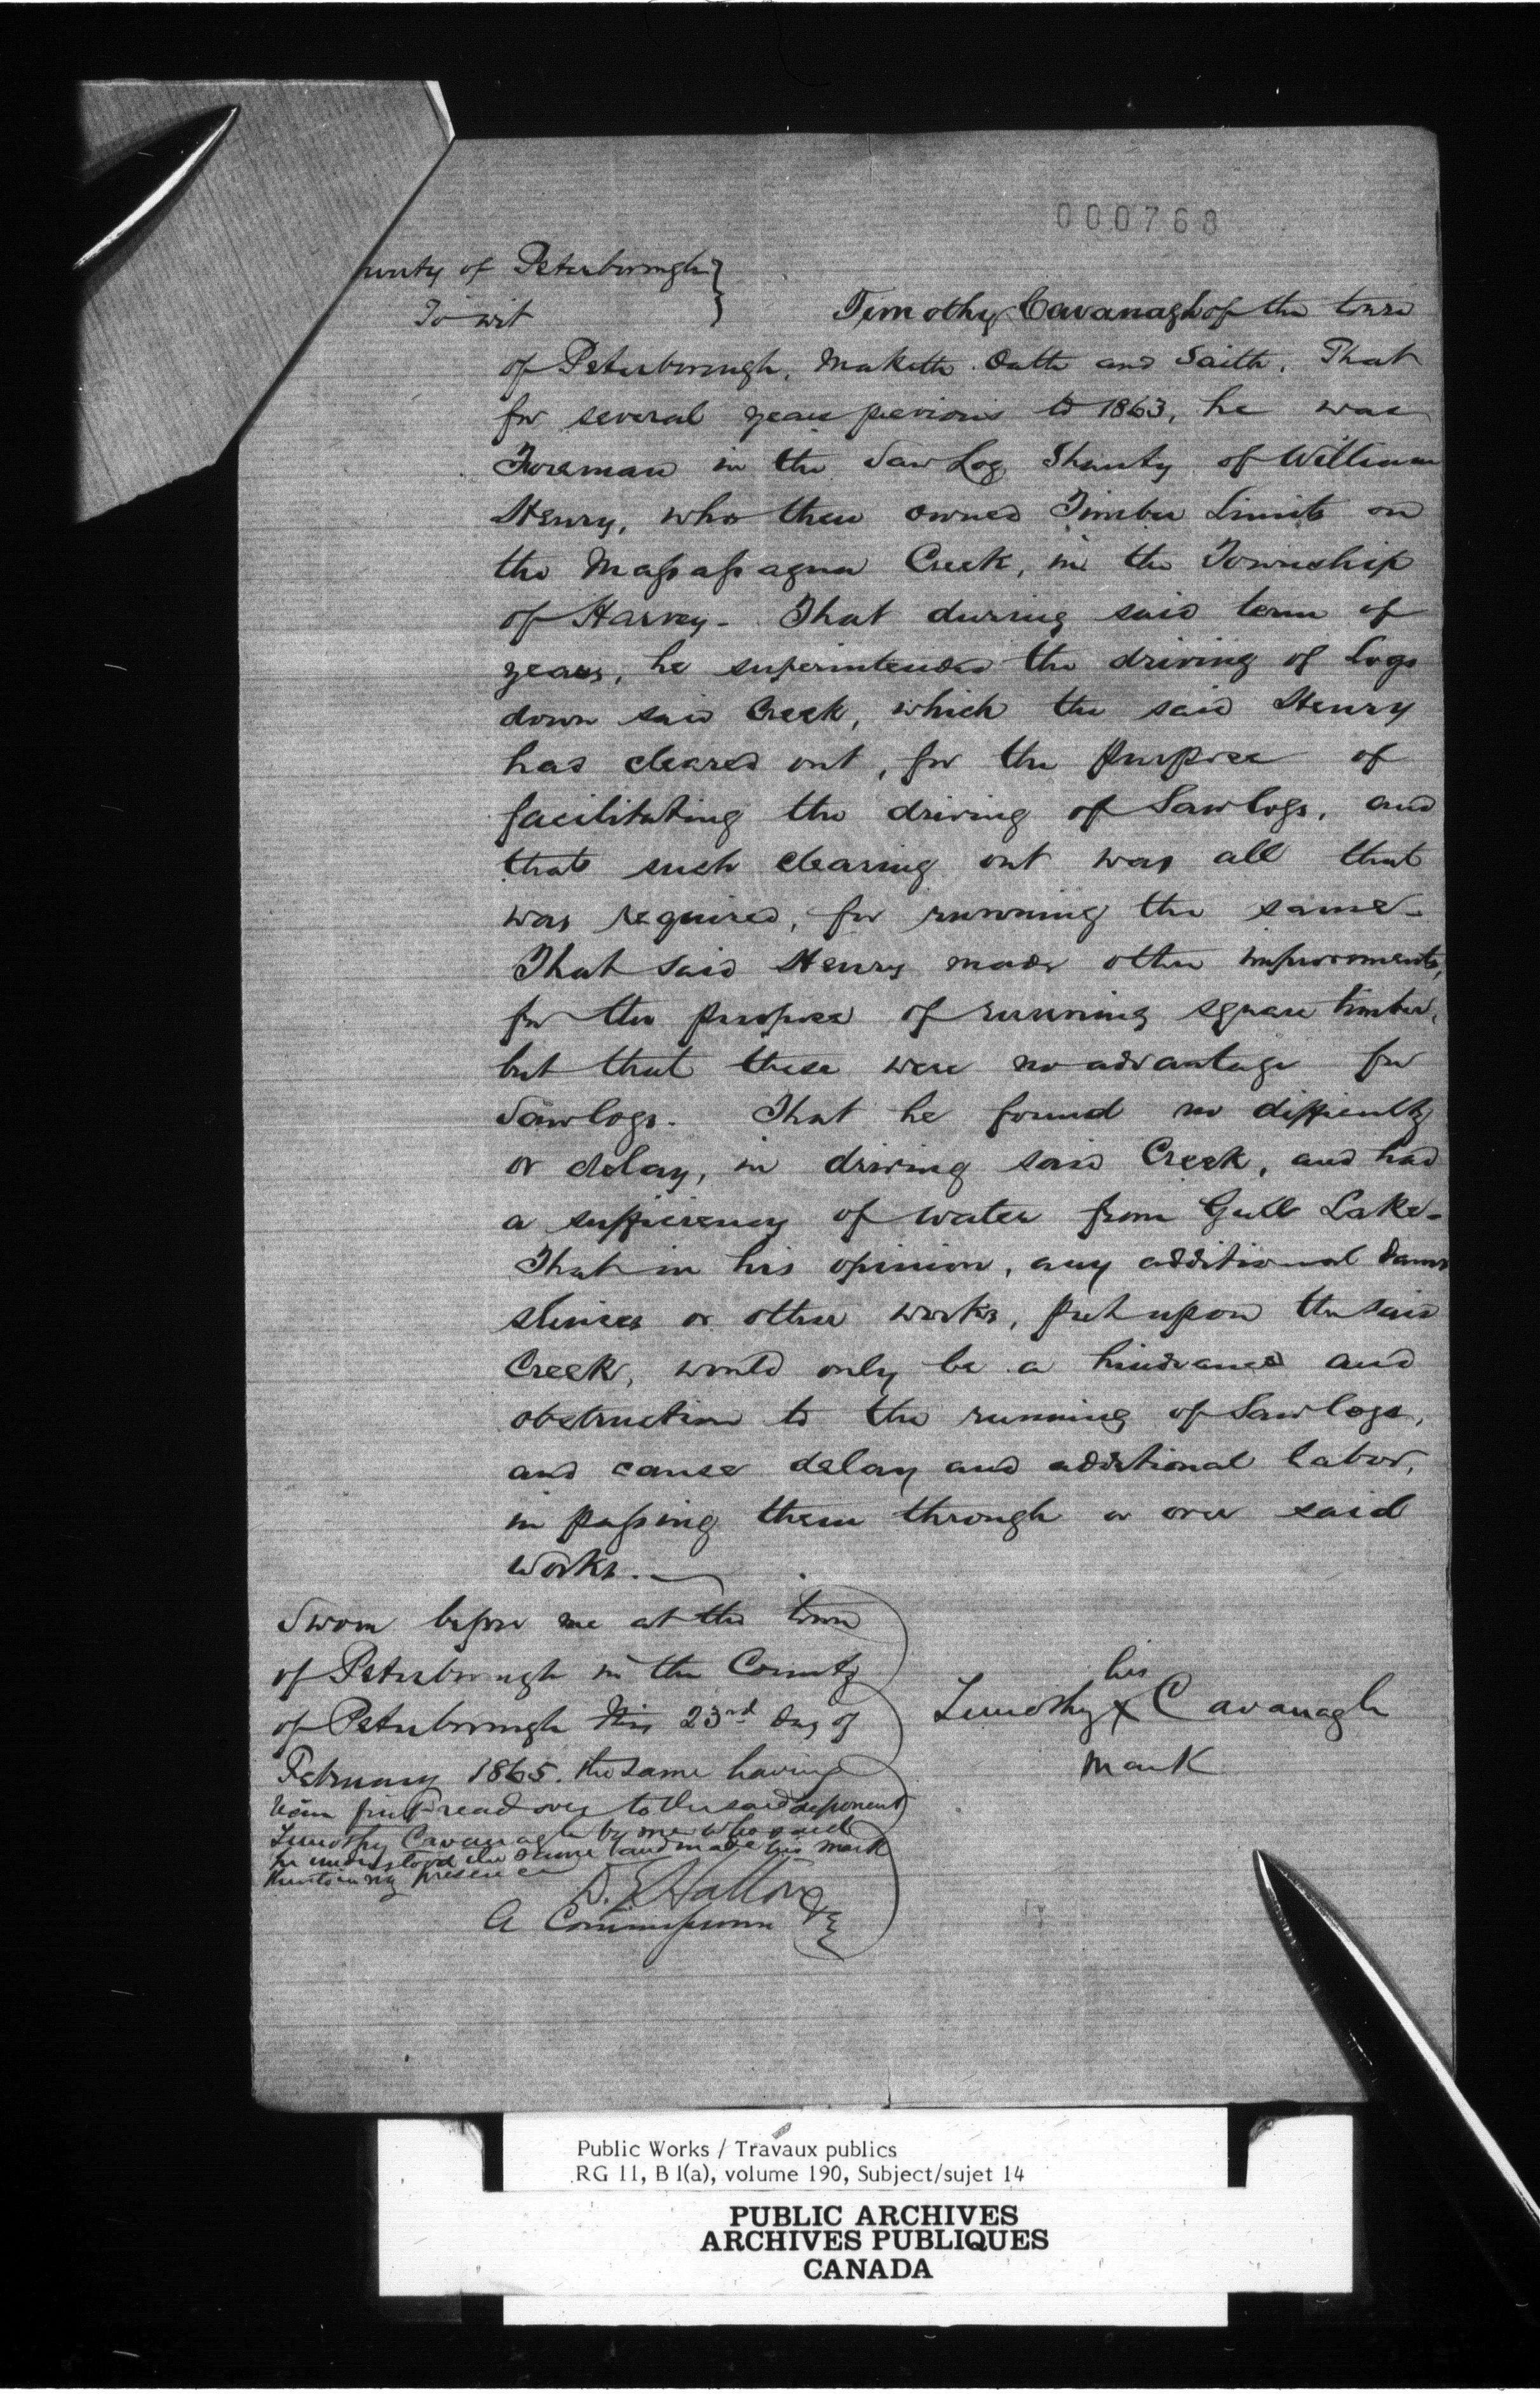 000768
unty of Peterborough }
To wit
Timothy Cavanagh of the town
of Peterborough, Maketh Oath and Saith, That
for several years previous to 1863, he was
Foreman in the Saw Log Shanty of William
Henry, who then owned Timber Limits on
the Massassagua Creek, in the Township
of Harvey - That during said term of
years, he superintended the driving of logs
down said Creek, which the said Henry
has cleared out, for the purpose of
facilitating the driving of Sawlogs, and
that such clearing out was all that
was required, for running the same -
That said Henry made other improvements,
for the purpose of running square timber,
but that these were no advantage for
Sawlogs. That he found no difficulty
or delay, in driving said Creek, and had
a sufficiency of water from Gull Lake -
That in his opinion, any additional dams
slides or other works, put upon the said
Creek, would only be a hindrance and
obstruction to the running of Sawlogs,
and cause delay and additional labor,
in passing them through or over said
works.
Sworn before me at the town
of Peterborough in the County
of Peterborough this 23rd day of
February 1865. the same having
been first read over to the said deponent
Timothy Cavanagh by me who said
he understood the same and made his mark
thereto in my presence
A Commissioner &c
his
Timothy X Cavanagh
mark
Public Works / Travaux publics
RG 11, B 1(a), volume 190, Subject/sujet 14
PUBLIC ARCHIVES
ARCHIVES PUBLIQUES
CANADA